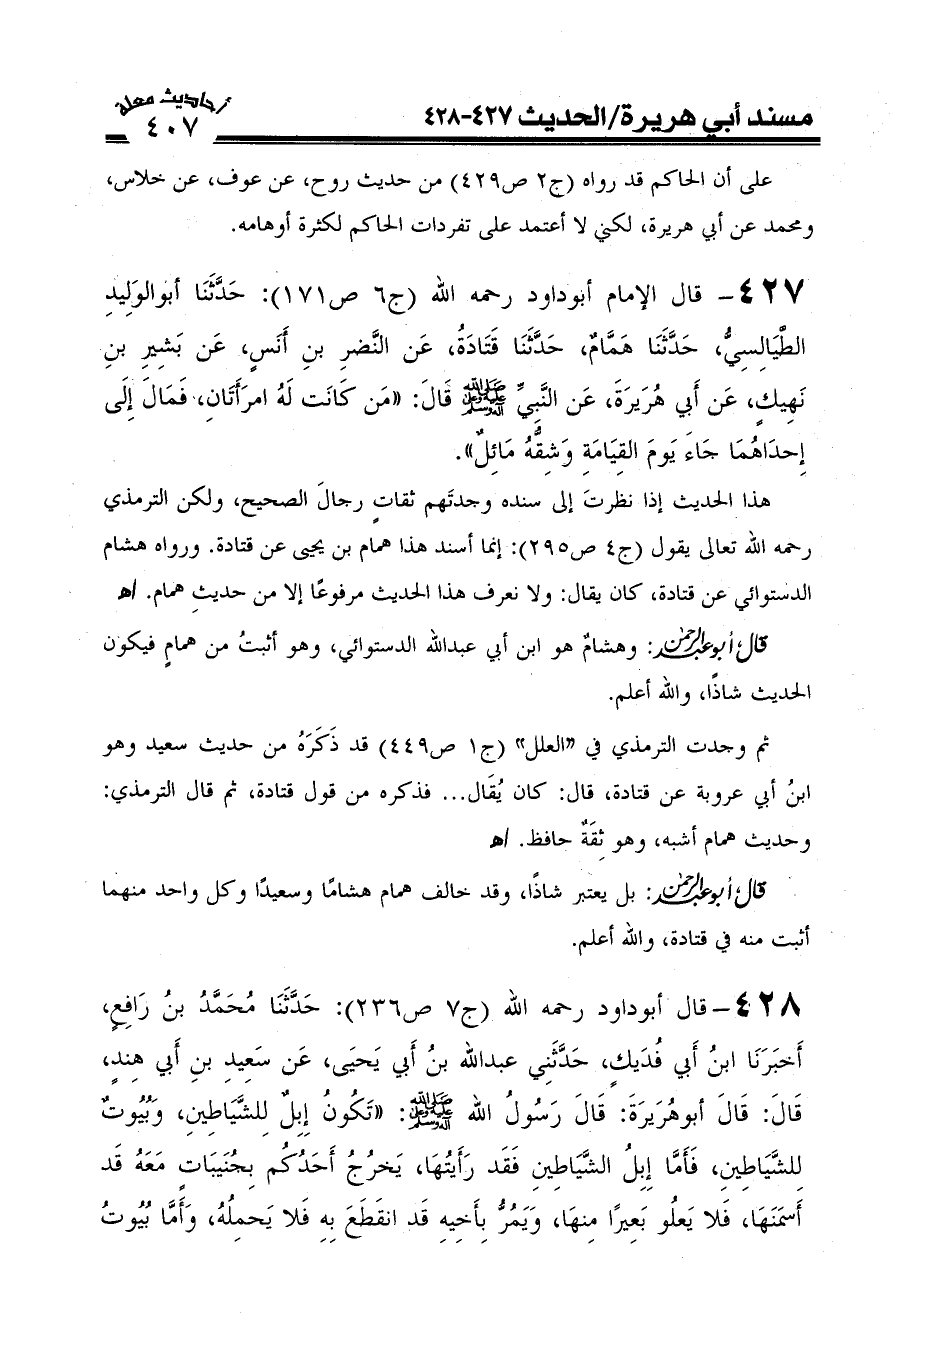 مسند أبي هريرة/الحديث ٤٢٧-٤٢٨
أحاديث معلة
٤٠٧
على أن الحاكم قد رواه (ج٢ ص٤٢٩) من حديث روح، عن عوف، عن خلاس،
ومحمد عن أبي هريرة، لكني لا أعتمد على تفردات الحاكم لكثرة أوهامه.
٤٢٧- قال الإمام أبوداود رحمه الله (ج٦ ص١٧١): حَدَّثَنَا أبوالوَلِيدِ
الطَّيَالِسِيُّ، حَدَّثَنَا هَمَّامٌ، حَدَّثَنَا قَتَادَةُ، عَن النَّضرِ بنِ أَنَسٍ، عَن بَشِيرِ بنِ
نَهِيكٍ، عَن أَبي هُرَيرَةَ، عَن النَّبيِّ ﷺ قَالَ: «مَن كَانَت لَهُ امرَأَتَانِ، فَمَالَ إِلَى
إِحدَاهُمَا جَاءَ يَومَ القِيَامَةِ وَشِقُّهُ مَائِلٌ».
هذا الحديث إذا نظرتَ إلى سنده وجدتَهم ثقاتٍ رجالَ الصحيح، ولكن الترمذي
رحمه الله تعالى يقول (ج٤ ص٢٩٥): إنما أسند هذا همام بن يحيى عن قتادة. ورواه هشام
الدستوائي عن قتادة، كان يقال: ولا نعرف هذا الحديث مرفوعًا إلا من حديثِ همام. اﻫ
قال أبوعبدالرحمن: وهشامٌ هو ابن أبي عبدالله الدستوائي، وهو أثبتُ من همامٍ فيكون
الحديث شاذًا، والله أعلم.
ثم وجدت الترمذي في «العلل» (ج١ ص٤٤٩) قد ذَكَرَهُ من حديث سعيد وهو
ابنُ أبي عروبة عن قتادة، قال: كان يُقَال... فذكره من قول قتادة، ثم قال الترمذي:
وحديث همام أشبه، وهو ثِقَةٌ حافظ. اﻫ
قال أبوعبدالرحمن: بل يعتبر شاذًا، وقد خالف همام هشامًا وسعيدًا وكل واحد منهما
أثبت منه في قتادة، والله أعلم.
٤٢٨- قال أبوداود رحمه الله (ج٧ ص٢٣٦): حَدَّثَنَا مُحَمَّدُ بنُ رَافِعٍ،
أَخبَرَنَا ابنُ أَبي فُدَيكٍ، حَدَّثَنِي عبدالله بنُ أَبي يَحيَى، عَن سَعِيدِ بنِ أَبي هِندٍ،
قَالَ: قَالَ أبوهُرَيرَةَ: قَالَ رَسُولُ الله ﷺ: «تَكُونُ إِبِلٌ لِلشَّيَاطِينِ، وَبُيُوتٌ
لِلشَّيَاطِينِ، فَأَمَّا إِبِلُ الشَّيَاطِينِ فَقَد رَأَيتُهَا، يَخرُجُ أَحَدُكُم بِجُنَيبَاتٍ مَعَهُ قَد
أَسمَنَهَا، فَلا يَعلُو بَعِيرًا مِنهَا، وَيَمُرُّ بِأَخِيهِ قَد انقَطَعَ بِهِ فَلا يَحمِلُهُ، وَأَمَّا بُيُوتُ